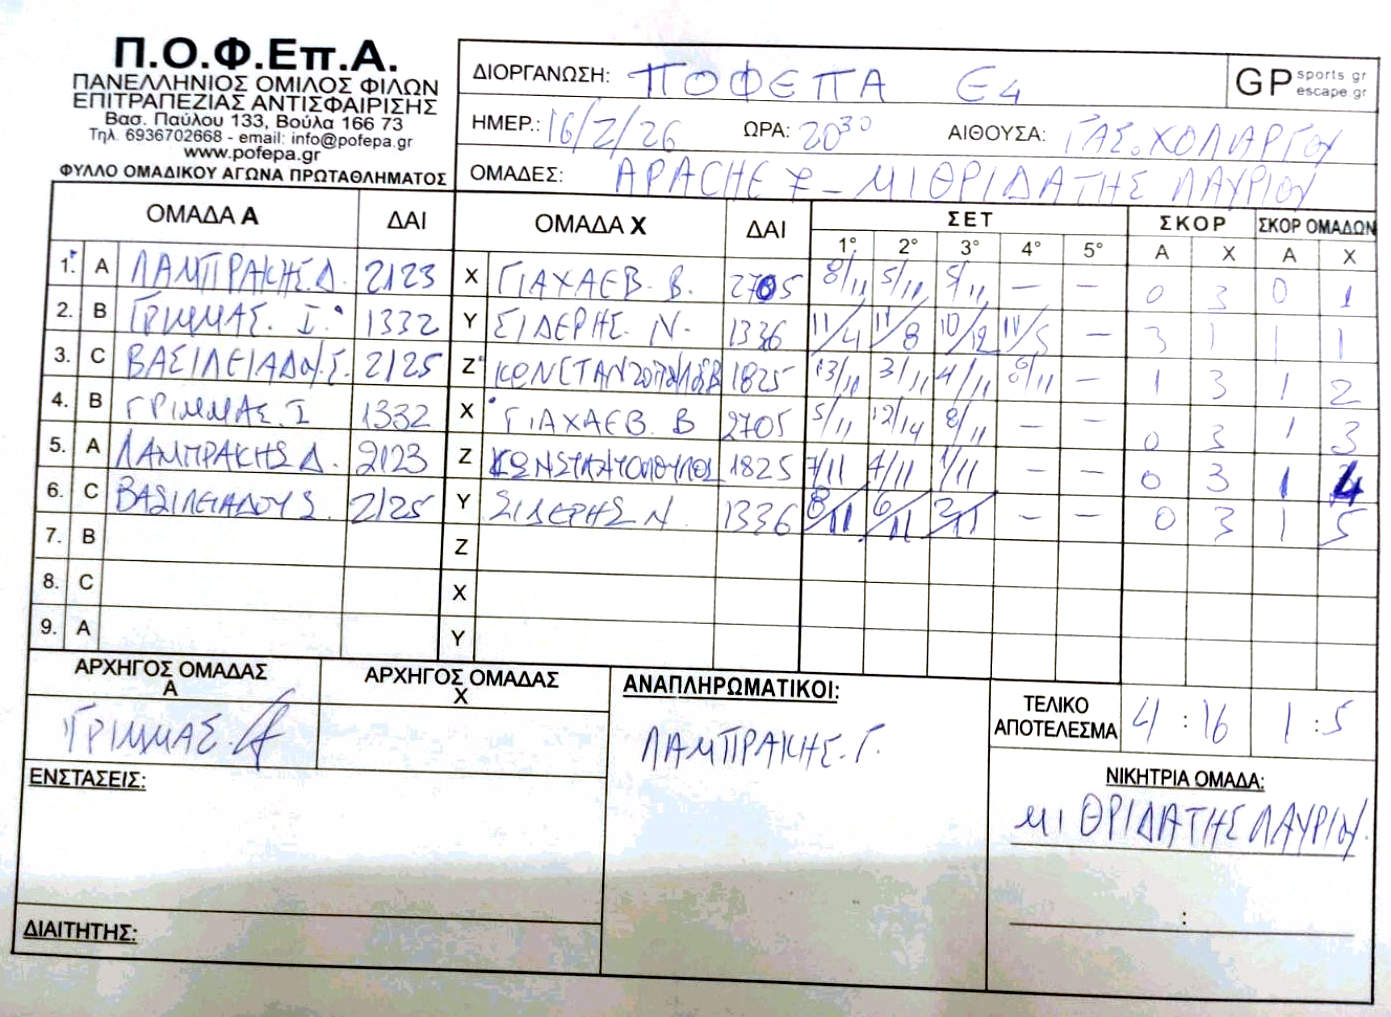 Π.Ο.Φ.Επ.Α.
ΠΑΝΕΛΛΗΝΙΟΣ ΟΜΙΛΟΣ ΦΙΛΩΝ
ΕΠΙΤΡΑΠΕΖΙΑΣ ΑΝΤΙΣΦΑΙΡΙΣΗΣ
Βασ. Παύλου 133, Βούλα 166 73
Τηλ. 6936702668 - email: info@pofepa.gr
www.pofepa.gr
ΦΥΛΛΟ ΟΜΑΔΙΚΟΥ ΑΓΩΝΑ ΠΡΩΤΑΘΛΗΜΑΤΟΣ
ΔΙΟΡΓΑΝΩΣΗ: ΠΟΦΕΠΑ Ε4
GP sports gr
escape.gr
ΗΜΕΡ.: 16/2/26 ΩΡΑ: 20 30 ΑΙΘΟΥΣΑ: ΓΑΣ. ΧΟΛΑΡΓΟΥ
ΟΜΑΔΕΣ: APACHE 7 – ΜΙΘΡΙΔΑΤΗΣ ΛΑΥΡΙΟΥ
ΟΜΑΔΑ Α ΔΑΙ ΟΜΑΔΑ Χ ΔΑΙ ΣΕΤ ΣΚΟΡ ΣΚΟΡ ΟΜΑΔΩΝ
1° 2° 3° 4° 5° Α Χ Α Χ
1. Α ΛΑΜΠΡΑΚΗΣ.Δ. 2123 Χ ΓΙΑΧΑΕΒ. Β. 2705 8/11 5/11 5/11 – – 0 3 0 1
2. Β ΓΡΙΜΜΑΣ. Ι. 1332 Υ ΣΙΔΕΡΗΣ. Ν. 1336 11/4 11/8 10/12 11/5 – 3 1 1 1
3. C ΒΑΣΙΛΕΙΑΔΟΥ.Σ. 2125 Ζ ΚΩΝΣΤΑΝΤΟΠΟΥΛΟΣ Β 1825 13/10 3/11 4/11 /11 – 1 3 1 2
4. Β ΓΡΙΜΜΑΣ. Ι 1332 Χ ΓΙΑΧΑΕΒ. Β 2705 5/11 12/14 8/11 – – 0 3 1 3
5. Α ΛΑΜΠΡΑΚΗΣ Δ. 2123 Ζ ΚΩΝΣΤΑΝΤΟΠΟΥΛΟΣ 1825 7/11 /11 /11 – – 0 3 1 4
6. C ΒΑΣΙΛΕΙΑΔΟΥ Σ. 2125 Υ ΣΙΔΕΡΗΣ Ν. 1336 8/11 6/11 2/11 – – 0 3 1 5
7. Β Ζ
8. C Χ
9. Α Υ
ΑΡΧΗΓΟΣ ΟΜΑΔΑΣ
Α
ΓΡΙΜΜΑΣ.
ΑΡΧΗΓΟΣ ΟΜΑΔΑΣ
Χ
ΑΝΑΠΛΗΡΩΜΑΤΙΚΟΙ:
ΛΑΜΠΡΑΚΗΣ. Γ.
ΤΕΛΙΚΟ
ΑΠΟΤΕΛΕΣΜΑ 4 : 16 1 : 5
ΕΝΣΤΑΣΕΙΣ:
ΝΙΚΗΤΡΙΑ ΟΜΑΔΑ:
ΜΙΘΡΙΔΑΤΗΣ ΛΑΥΡΙΟΥ.
:
ΔΙΑΙΤΗΤΗΣ: